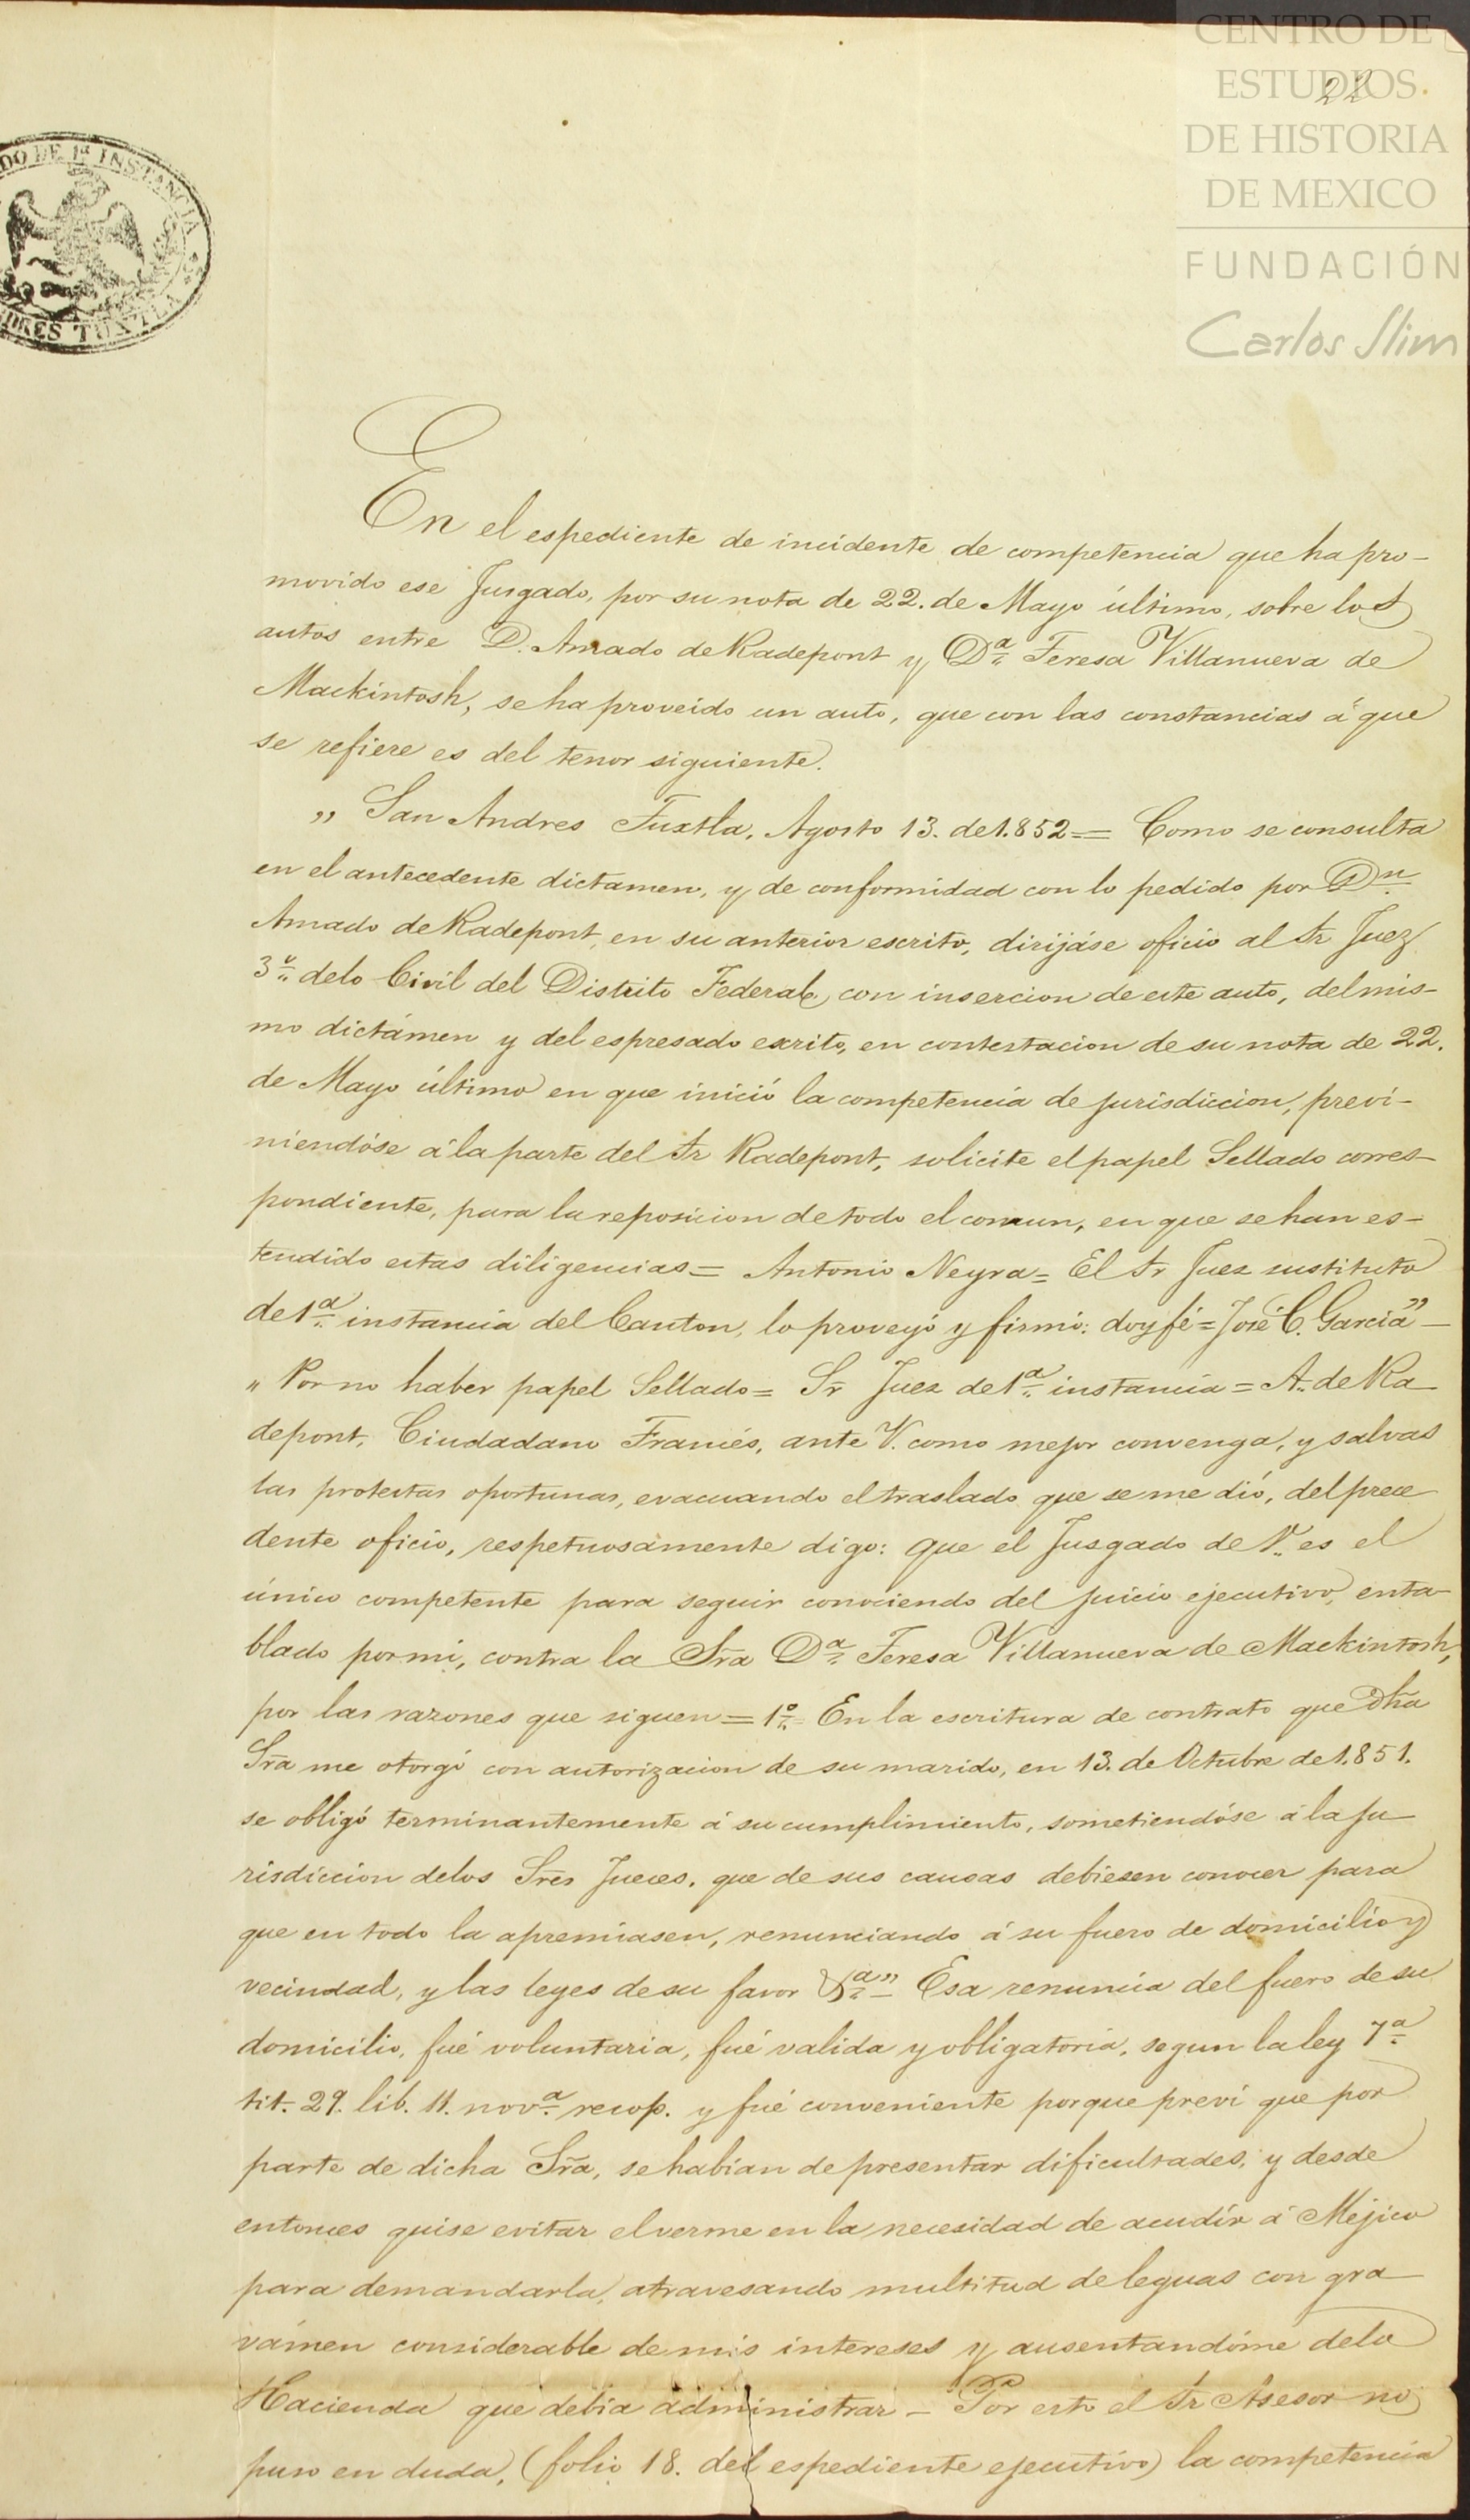 CENTRO DE
ESTUDIOS
DE HISTORIA
DE MEXICO
FUNDACIÓN
Carlos Slim
22
DO DE 1ª INSTANCIA
DRES TUXTLA
En el espediente de incidente de competencia que ha pro-
movido ese Jusgado, por su nota de 22. de Mayo último, sobre los
autos entre D. Amado de Radepont y Dª Teresa Villanueva de
Mackintosh, se ha proveido un auto, que con las constancias á que
se refiere es del tenor siguiente.
„ San Andres Tuxtla, Agosto 13. de 1.852 = Como se consulta
en el antecedente dictamen, y de conformidad con lo pedido por Dn
Amado de Radepont, en su anterior escrito, dirijáse oficio al Sr Juez
3º de lo Civil del Distrito Federal, con insercion de este auto, del mis-
mo dictámen y del espresado escrito, en contestacion de su nota de 22.
de Mayo último en que inició la competencia de jurisdiccion, previ-
niendóse á la parte del Sr Radepont, solicite el papel Sellado corres-
pondiente, para la reposicion de todo el comun, en que se han es-
tendido estas diligencias = Antonio Neyra = El Sr Juez sustituto
de 1ª instancia del Canton, lo proveyó y firmó: doy fé = José C. Garcia” —
„ Por no haber papel Sellado = Sr Juez de 1ª instancia = A. de Ra
depont, Ciudadano Francés, ante V. como mejor convenga, y salvas
las protestas oportunas, evacuando el traslado que se me dió, del prece
dente oficio, respetuosamente digo: que el Jusgado de V. es el
único competente para seguir conociendo del juicio ejecutivo, enta-
blado por mi, contra la Sra Dª Teresa Villanueva de Mackintosh,
por las razones que siguen = 1º En la escritura de contrato que dha
Sra me otorgó con autorizacion de su marido, en 13. de Octubre de 1.851.
se obligó terminantemente á su cumplimiento, sometiendóse á la ju
risdiccion de los Sres Jueces, que de sus causas debiesen conocer para
que en todo la apremiasen, renunciando á su fuero de domicilio y
vecindad, y las leyes de su favor &ª” — Esa renuncia del fuero de su
domicilio, fué voluntaria, fué valida y obligatoria, segun la ley 7ª
tit. 29. lib. 11. novª recop. y fué conveniente porque previ que por
parte de dicha Sra, se habian de presentar dificultades, y desde
entonces quise evitar el verme en la necesidad de acudir á Méjico
para demandarla, atravesando multitud de leguas con gra
vámen considerable de mis intereses y ausentandóme de la
Hacienda que debia administrar — Por esto el Sr Asesor no
puso en duda, (folio 18. del espediente ejecutivo) la competencia